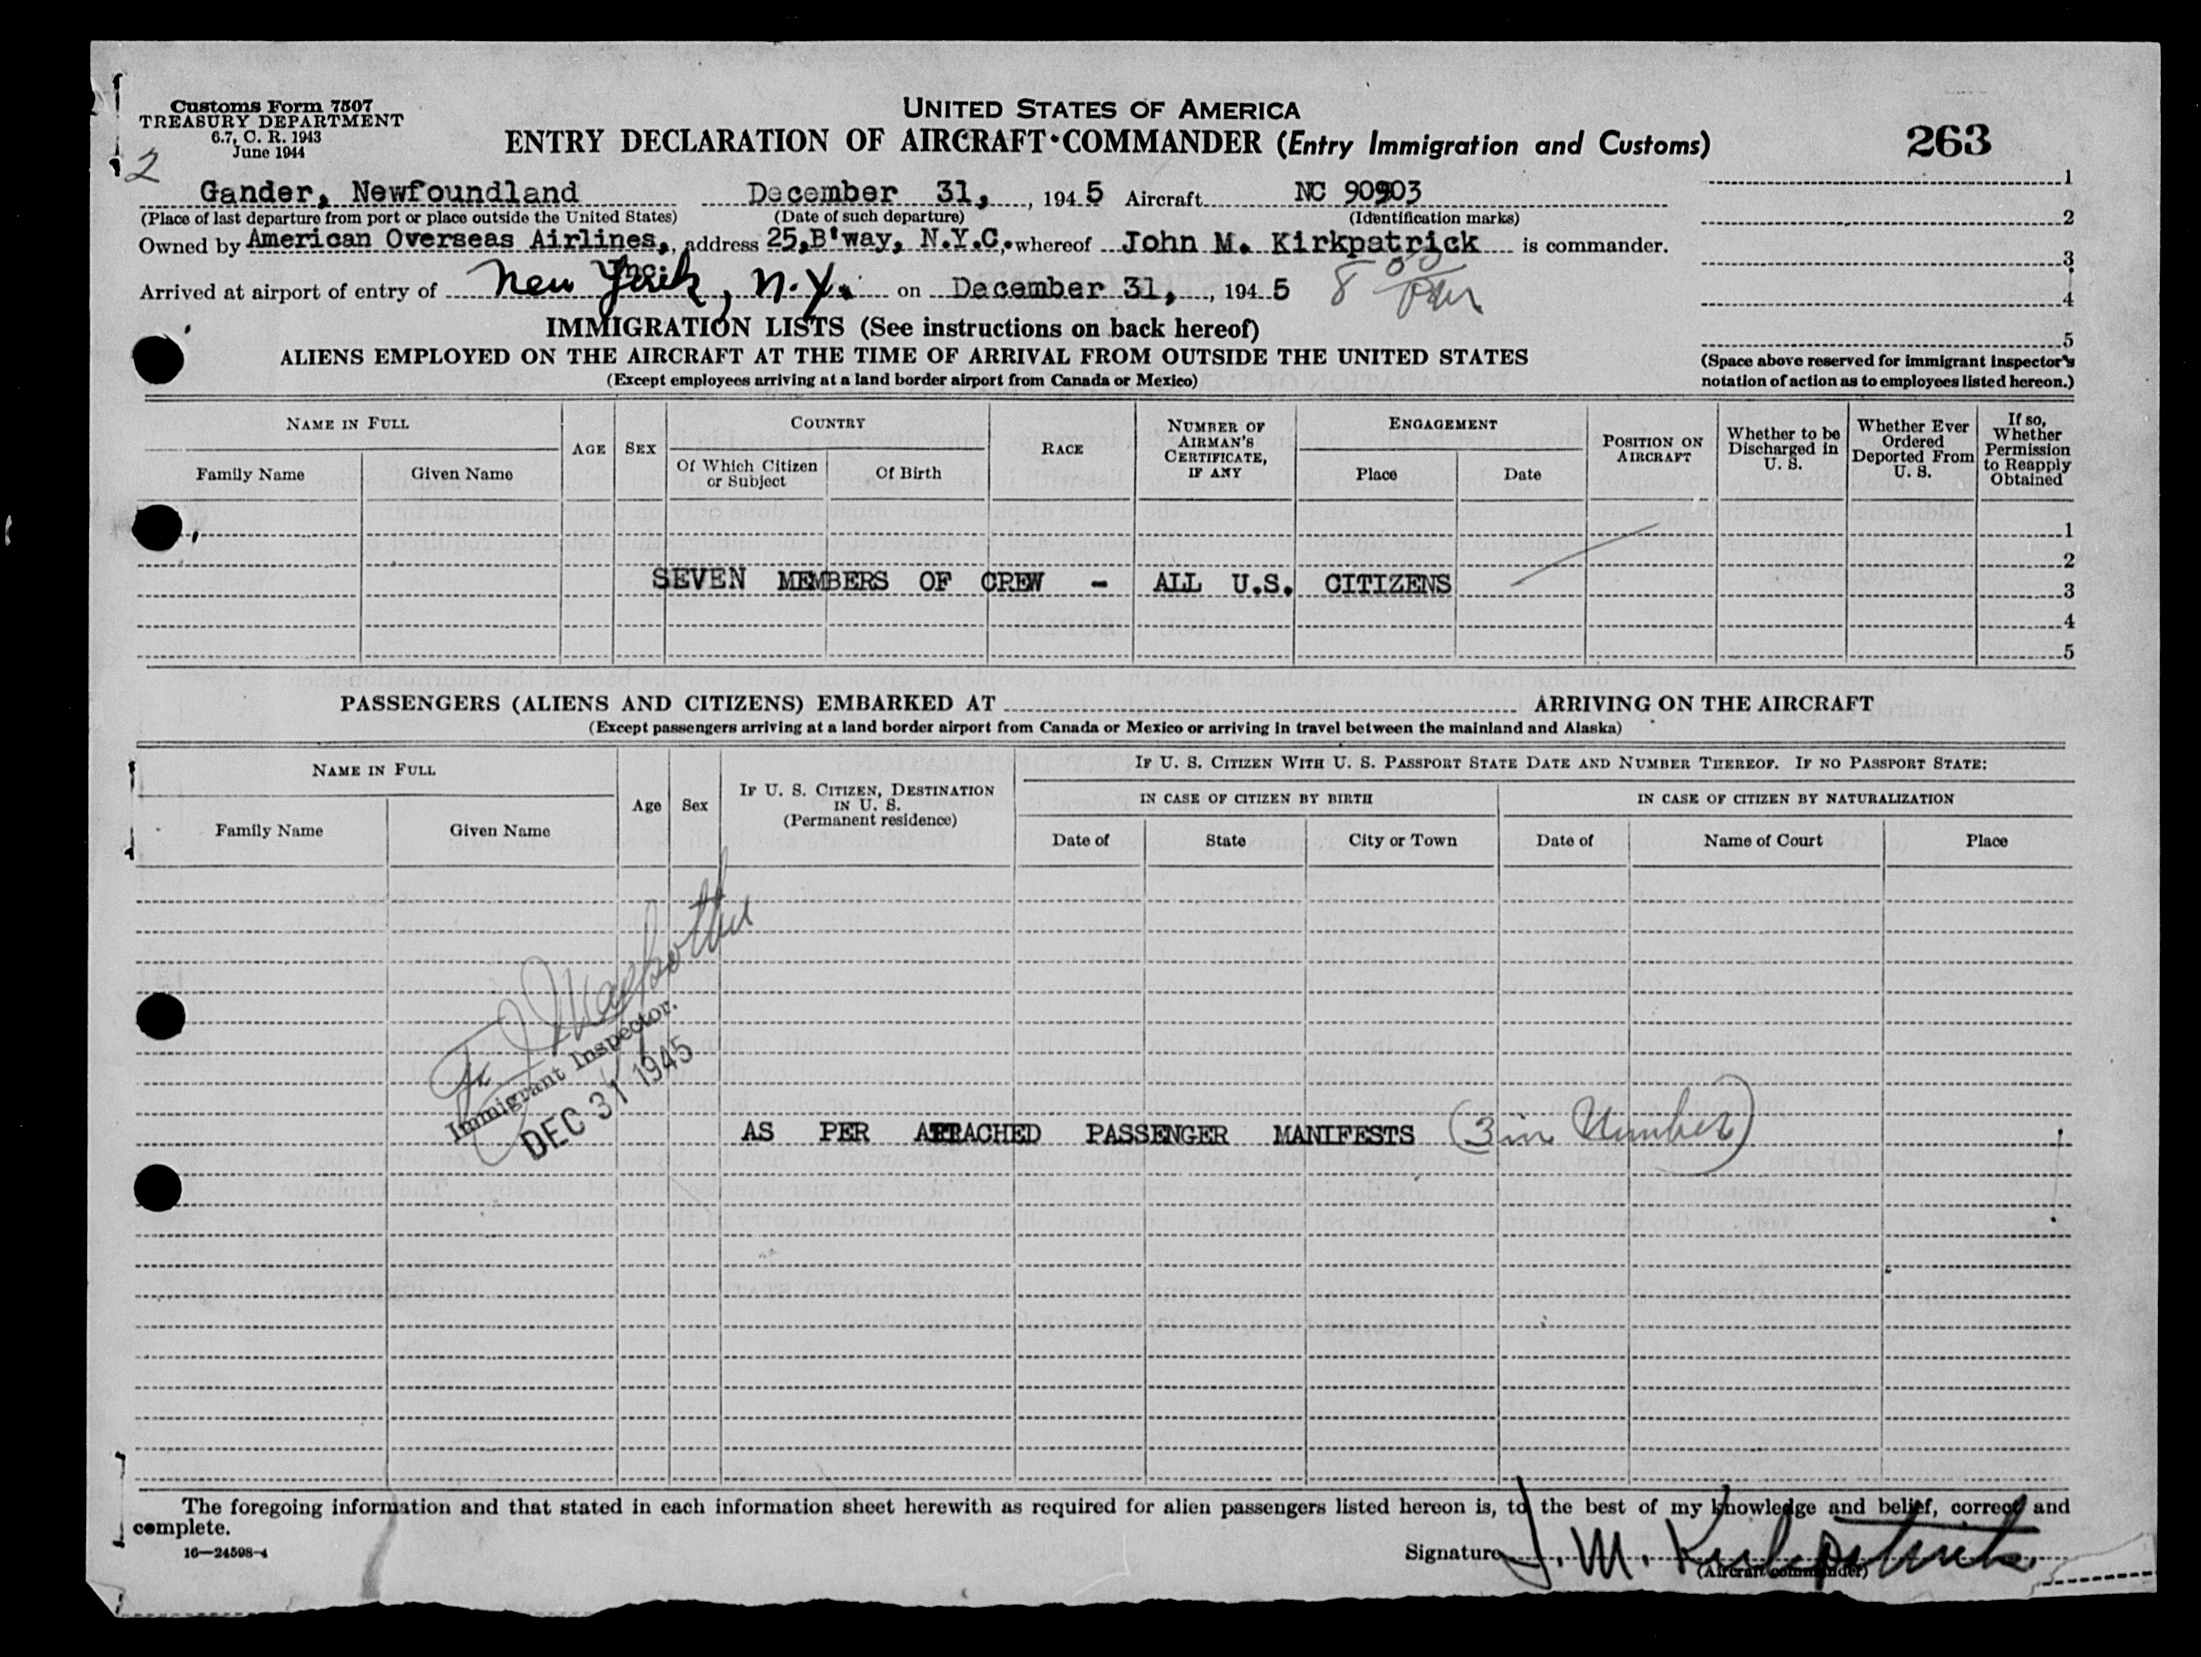 Customs Form 7507
TREASURY DEPARTMENT
6.7, C. R. 1943
June 1944
2
UNITED STATES OF AMERICA
ENTRY DECLARATION OF AIRCRAFT COMMANDER (Entry Immigration and Customs)
263
Gander, Newfoundland December 31, , 1945 Aircraft NC 90903
(Place of last departure from port or place outside the United States) (Date of such departure) (Identification marks)
Owned by American Overseas Airlines, Inc. , address 25,B'way, N.Y.C. , whereof John M. Kirkpatrick is commander.
Arrived at airport of entry of New York, N.Y. on December 31, , 1945 8 00 pm
1
2
3
4
5
(Space above reserved for immigrant inspector's
notation of action as to employees listed hereon.)
IMMIGRATION LISTS (See instructions on back hereof)
ALIENS EMPLOYED ON THE AIRCRAFT AT THE TIME OF ARRIVAL FROM OUTSIDE THE UNITED STATES
(Except employees arriving at a land border airport from Canada or Mexico)
NAME IN FULL
Family Name Given Name
AGE
SEX
COUNTRY
Of Which Citizen or Subject
Of Birth
RACE
NUMBER OF AIRMAN'S CERTIFICATE, IF ANY
ENGAGEMENT
Place Date
POSITION ON AIRCRAFT
Whether to be Discharged in U. S.
Whether Ever Ordered Deported From U. S.
If so, Whether Permission to Reapply Obtained
1
2
SEVEN MEMBERS OF CREW - ALL U.S. CITIZENS 3
4
5
PASSENGERS (ALIENS AND CITIZENS) EMBARKED AT ARRIVING ON THE AIRCRAFT
(Except passengers arriving at a land border airport from Canada or Mexico or arriving in travel between the mainland and Alaska)
NAME IN FULL
Family Name Given Name
Age
Sex
IF U. S. CITIZEN, DESTINATION
IN U. S.
(Permanent residence)
IF U. S. CITIZEN WITH U. S. PASSPORT STATE DATE AND NUMBER THEREOF. IF NO PASSPORT STATE:
IN CASE OF CITIZEN BY BIRTH IN CASE OF CITIZEN BY NATURALIZATION
Date of State City or Town Date of Name of Court Place
Immigrant Inspector.
DEC 31 1945
AS PER ATTACHED PASSENGER MANIFESTS (3 in Number)
The foregoing information and that stated in each information sheet herewith as required for alien passengers listed hereon is, to the best of my knowledge and belief, correct and
complete.
16—24598-4
Signature J. M. Kirkpatrick
(Aircraft commander)